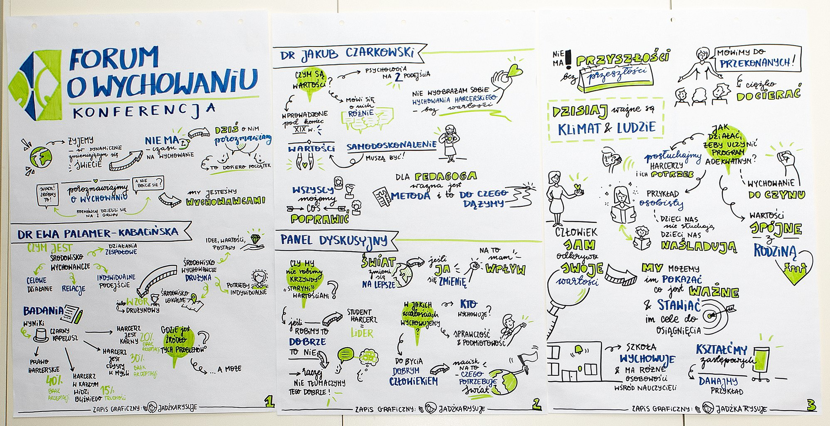 FORUM
O WYCHOWANIU
KONFERENCJA
ŻYJEMY
W DYNAMICZNIE
zmieniającym się
ŚWIECIE
NIE MA
czasu
NA WYCHOWANIE
DZIŚ O NIM
porozmawiamy
TO DOPIERO POCZĄTEK
porozmawiajmy
O WYCHOWANIU
MY JESTEŚMY
WYCHOWAWCAMI
DR EWA PALAMER-KABACIŃSKA
CZYM JEST
ŚRODOWISKO
WYCHOWAWCZE
DZIAŁANIA
ZESPOŁOWE
IDEE, WARTOŚCI,
POSTAWY
CELOWE
DZIAŁANIE
RELACJE
INDYWIDUALNE
PODEJŚCIE
ŚRODOWISKO
WYCHOWAWCZE
DRUŻYNA
ŚRODOWISKO
LOKALNE
POTRZEBY
INDYWIDUALNE
jako WZÓR
DRUŻYNOWY
BADANIA
WYNIKI
CZARNY
KAPELUSZ
PRAWO
HARCERSKIE
40%
HARCERZ
JEST
KARNY
20%
HARCERZ
JEST
CZYSTY
W MYŚLI
30%
HARCERZ
W KAŻDYM
WIDZI
BLIŹNIEGO
15%
GDZIE JEST
ŹRÓDŁO
TYCH PROBLEMÓW
?
... A MOŻE
ZAPIS GRAFICZNY: JADŹKA RYSUJE
1
DR JAKUB CZARKOWSKI
CZYM SĄ
WARTOŚCI?
PSYCHOLOGIA
MA 2 PODEJŚCIA
WPROWADZONE
pod koniec
XIX w.
MÓWI się
o nich
RÓŻNIE
NIE WYOBRAŻAM SOBIE
WYCHOWANIA HARCERSKIEGO
- bez wartości
WARTOŚCI
SAMODOSKONALENIE
MUSZĄ BYĆ!
WSZYSCY
MOŻEMY
COŚ
POPRAWIĆ
DLA PEDAGOGA
ważna jest
METODA i to DO CZEGO
DĄŻYMY
PANEL DYSKUSYJNY
CZY MY
nie robimy
KRZYWDY
STARYMI
WARTOŚCIAMI
?
ŚWIAT
zmieni się
NA LEPSZE
jeśli
JA
się
ZMIENIĘ
NA TO
mam
WPŁYW
jeśli
ROBIMY TO
DOBRZE
TO NIE
raczej
NIE TŁUMACZYMY
TEGO DOBRZE!
STUDENT
HARCERZ
=
LIDER
W JAKICH
WARTOŚCIACH
WYCHOWUJEMY
?
KTO
WYCHOWUJE?
SPRAWCZOŚĆ
& PODMIOTOWOŚĆ
DO BYCIA
DOBRYM
CZŁOWIEKIEM
nacisk
NA TO
CZEGO
POTRZEBUJE
świat
ZAPIS GRAFICZNY: JADŹKA RYSUJE
2
NIE
MA
!
PRZYSZŁOŚCI
bez
przeszłości
MÓWIMY DO
PRZEKONANYCH!
& ciężko
DOCIERAĆ
DZISIAJ ważne są
KLIMAT & LUDZIE
JAK
DZIAŁAĆ,
ŻEBY UCZYNIĆ
PROGRAM
ADEKWATNYM?
posłuchajmy
HARCERZY
i ich POTRZEB
PRZYKŁAD
osobisty
DZIECI NIE
nas studiują
DZIECI NAS
NAŚLADUJĄ
WYCHOWANIE
DO CZYNU
WARTOŚCI
SPÓJNE
z
RODZINĄ
CZŁOWIEK
SAM
odkrywa
SWOJE
wartości
MY MOŻEMY
im POKAZAĆ
co jest WAŻNE
& STAWIAĆ
im cele do
OSIĄGNIĘCIA
SZKOŁA
WYCHOWUJE
& MA RÓŻNE
OSOBOWOŚCI
WŚRÓD NAUCZYCIELI
KSZTAŁĆMY
zastępowych
DAWAJMY
PRZYKŁAD
ZAPIS GRAFICZNY: JADŹKA RYSUJE
3